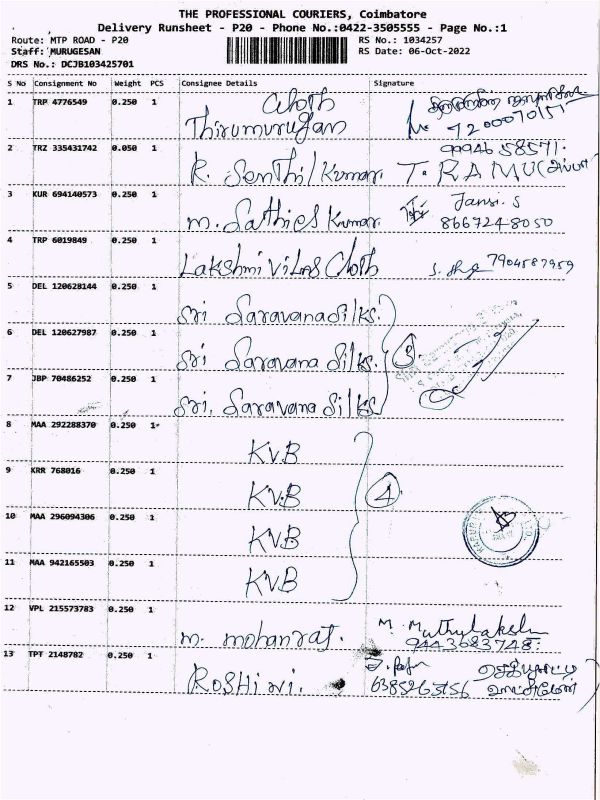 THE PROFESSIONAL COURIERS, Coimbatore
Delivery Runsheet - P20 - Phone No.:0422-3505555 - Page No.:1
Route: MTP ROAD - P20 RS No.: 1034257
Staff: MURUGESAN RS Date: 06-Oct-2022
DRS No.: DCJB103425701
S No Consignment No Weight PCS Consignee Details Signature
1 TRP 4776549 0.250 1 Cloth
Thirumurugan 7200070151
2 TRZ 335431742 0.050 1 9994658571
K. Senthil Kumar. T. RAMU
3 KUR 694140573 0.250 1 Jansi. S
M. Sathies Kumar. 8667248050
4 TRP 6019849 0.250 1
Lakshmi Vilas Cloth 7904587959
5 DEL 120628144 0.250 1
Sri Saravana Silks.
6 DEL 120627987 0.250 1
Sri Saravana Silks. 3
7 JBP 70486252 0.250 1
Sri. Saravana Silks
8 MAA 292288370 0.250 1
KVB
9 KRR 768016 0.250 1
KVB 4
10 MAA 296094306 0.250 1
KVB
11 MAA 942165503 0.250 1
KVB
12 VPL 215573783 0.250 1 M. Muthulakshmi
M. Mohanraj. 9443683748
13 TPT 2148782 0.250 1
ROSHINI. 6385265156